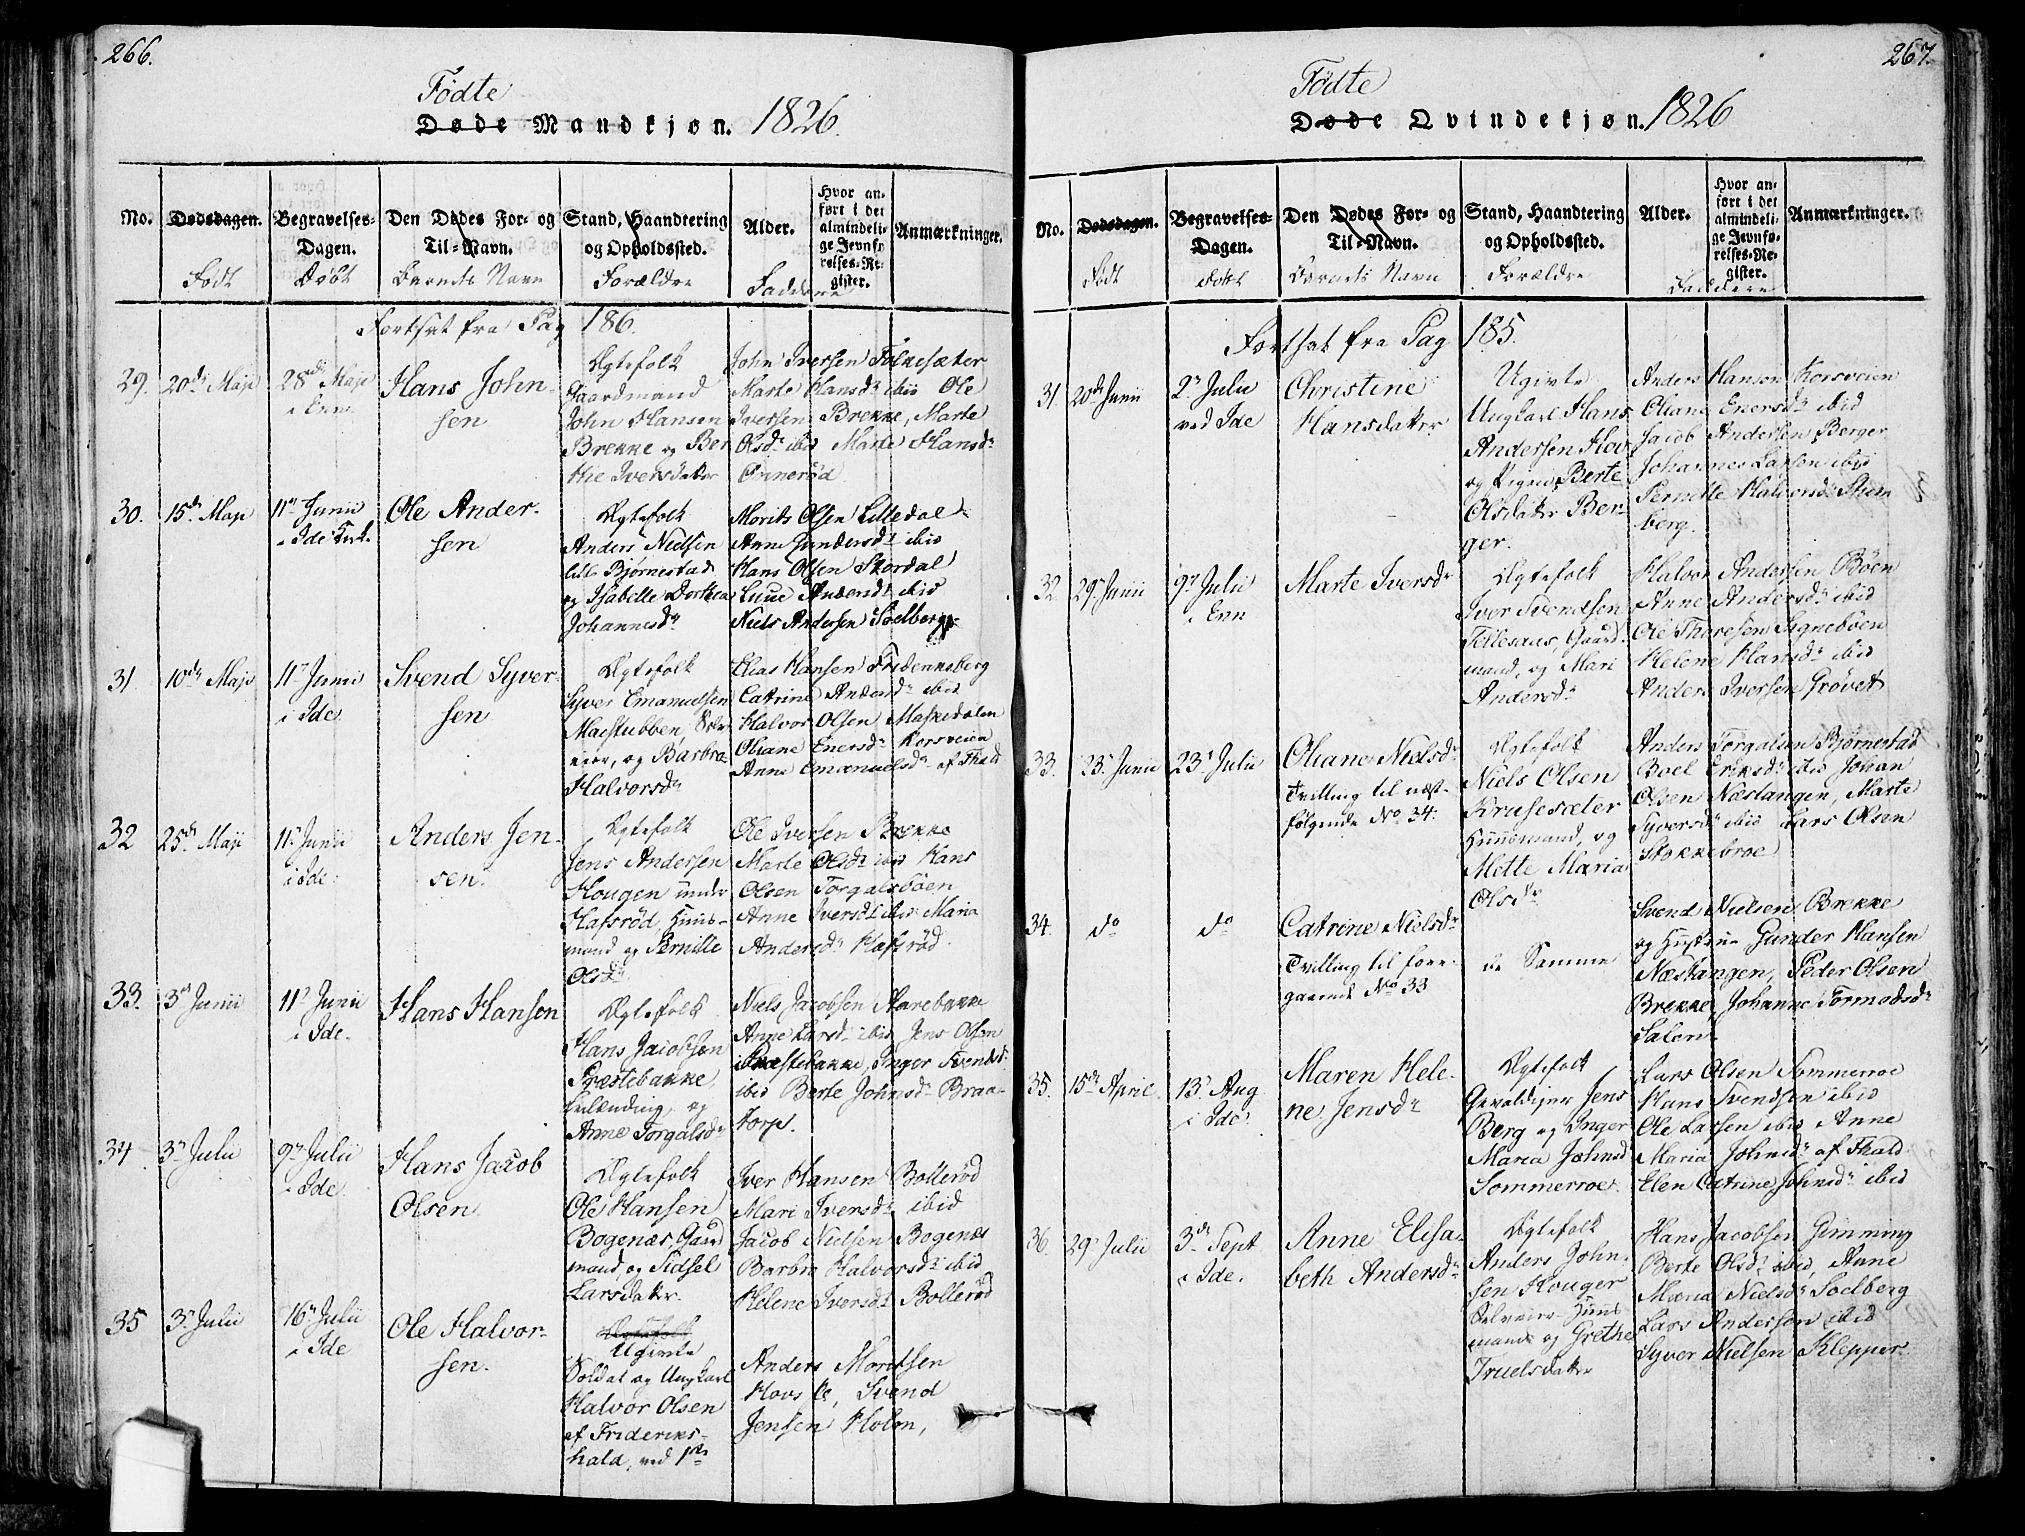 266.
Fødte
Døde Mandkjøn. 1826.
No.
Dødsdagen.
Født
Begravelses-
Dagen.
Døbt
Den Dødes For- og
Til-Navn.
Barnets Navn
Stand, Haandtering
og Opholdssted.
Forældre
Alder.
Faddere
Hvor an-
ført i det
almindeli-
ge Jevnfø-
relses-Re-
gister.
Anmærkninger.
Fortsat fra Pag 186.
29.
20de Maji
28de Maji
i Enn
Hans John-
sen
Ægtefolk
Gaardmand
John Hansen
Brekke og Ber
the Iversdater
John Iversen Folkesæter
Marte Hansdr ibid Ole
Iversen Brekke, Marte
Olsdr ibid Marte Hansdr
Ørnerød
30.
15de Maji
11te Junii
i Ide Kirk.
Ole Ander-
sen
Ægtefolk
Anders Nielsen
lille Bjørnestad
og Isabelle Dorthea
Johannesdr
Morits Olsen Lilledal
Anne Gundersdr ibid
Hans Olsen Skordal
Andersdr ibid
Niels Andersen Soelberg
31
10de Maji
11te Junii
i Ide
Svend Syver-
sen
Ægtefolk
Syver Emanuelsen
Maestubben, Selv
eier, og Barbra
Halvorsdr
Elias Hansen Fredriksberg
Catrine Andersdr ibid
Halvor Olsen Maskedalen
Oliane Enersdr Korsveien
Anne Emanuelsdr af Fhald
32
25de Maji
11te Junii
i Ide.
Anders Jen-
sen.
Ægtefolk
Jens Andersen
Hougen under
Hafsrød Huus-
mand og Pernille
Olsdr
Ole Iversen Brekke
Marte Olsdr ibid Hans
Olsen Torgalsbøen
Anne Iversdr ibid Maria
Andersdr Hafsrød
33.
3de Junii
11te Junii
i Ide.
Hans Hansen
Ægtefolk
Hans Jacobsen
Præstebakke
og
Anne Torgalsdr
Niels Jacobsen Harebakke
Anne Larsdr ibid Jens Olsen
Præstebakke, Inger Svendsd
ibid Berte Johnsdr Braa-
torp.
34
3de Julii
9de Julii
i Ide
Hans Jacob
Olsen
Ægtefolk
Ole Hansen
Bogenæs, Gaard
mand og Sidsel
Larsdater.
Iver Hansen Bollerød
Mari Iversdr ibid
Jacob Nielsen Bogenæs
Barbra Halvorsdr ibid
Helene Iversdr Bollerød
35
3de Julii
16de Julii
i Ide
Ole Halvor-
sen.
Ægtefolk
Ugivte
Soldat og Ungkarl
Halvor Olsen
af Frideriks-
hald, ved 1ste
Anders Moritsen
Hovs Svend
Jensen Holm,
267.
Fødte
Døde Qvindekjøn. 1826
No.
Dødsdagen.
Født
Begravelses-
Dagen.
Døbt
Den Dødes For- og
Til-Navn.
Barnets Navn
Stand, Haandtering
og Opholdssted.
Forældre
Alder.
Faddere
Hvor an-
ført i det
almindeli-
ge Jevnfø-
relses-Re-
gister.
Anmærkninger.
Fortsat fra Pag 185.
31.
20de Junii
2de Julii
ved Ide
Christine
Hansdater
Ugivte
Ungkarl Hans
Andersen Hov
og Pigen Berte
Olsdater Ber
ger.
Anders Hansen Korsveien
Oliane Enersdr ibid
Jacob Andersen Berger
Johannes Larsen ibid
Pernille Halvorsdr
berg.
32
29de Junii
9de Julii
i Enn
Marte Iversdr
Ægtefolk
Iver Svendsen
Tellesaas Gaard-
mand, og Mari
Andersdr
Halvor Andersen Bøen
Anne Andersdr ibid
Ole Thoresen Signebøen
Helene Hansdr ibid
Anders Iversen Grøvet
33.
23de Junii
23de Julii
Oliane Nielsdr
Tvilling til næst-
følgende No 34.
Ægtefolk
Niels Olsen
Krusesæter
Huusmand, og
Mette Maria
Olsdr
Anders Torgalsen Bjørnestad
Boel Eriksdr ibid Johan
Olsen Næstangen, Marte
Syversdr ibid Lars Olsen
Stykkebroe
34.
do
do
Catrine Nielsdr
Tvilling til fore-
gaaende No 33
de Samme
Svend Nielsen Brekke
og Hustrue Gunder Hansen
Næstangen, Peder Olsen
Brekke, Johanne Tormodsdr
Salen
35.
15de April.
13de Aug
i Ide.
Maren Hele-
ne Jensdr
Ægtefolk
Gevaldiger Jens
Berg og Inger
Maria Johnsd
Sommerroe.
Lars Olsen Sommerroe
Hans Svendsen ibid
Ole Larsen ibid Anne
Maria Johnsdr af Fhald
Elen Catrine Johnsdr ibid
36.
29de Julii
3de Sept
i Ide.
Anne Elisa-
beth Andersdr
Ægtefolk
Anders John-
sen Houger
Selveier Huus
mand og Grethe
Truelsdater
Hans Jacobsen Gimming
Berte Olsdr ibid, Anne
Maria Nielsdr Soelberg
Lars Andersen ibid
Syver Nielsen Klepper